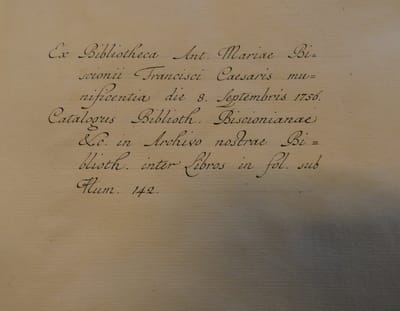 Ex Bibliotheca Ant. Mariae Bi=
scionii Francisci Caesaris mu=
nificentia die 8. Septembris 1756.
Catalogus Biblioth. Biscionianae
&c. in Archivo nostrae Bi=
blioth. inter Libros in fol. sub
Num. 142.